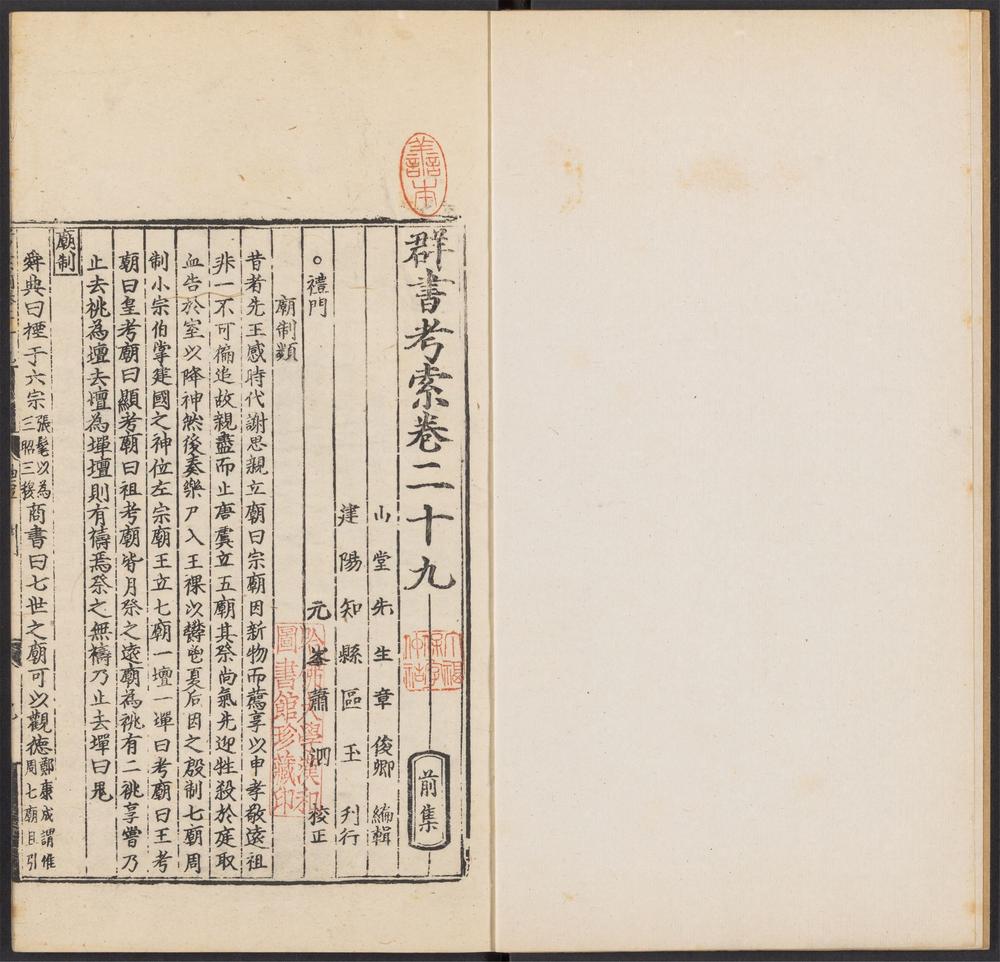 群書考索卷二十九
前集
山堂先生章俊卿編輯
建陽知縣區玉刋行
元峯蕭泗校正
○禮門
廟制類
昔者先王感時代謝思親立廟曰宗廟因新物而薦享以申孝敬遠祖
非一不可徧追故親盡而止唐虞立五廟其祭尚氣先迎牲殺於庭取
血告於室以降神然後奏樂尸入王祼以鬱鬯夏后因之殷制七廟周
制小宗伯掌建國之神位左宗廟王立七廟一壇一墠曰考廟曰王考
朝曰皇考廟曰顯考廟曰祖考廟皆月祭之遠廟為祧有二祧享嘗乃
止去祧為壇去壇為墠壇則有禱焉祭之無禱乃止去墠曰鬼
廟制
舜典曰禋于六宗張髦以為三昭三穆商書曰七世之廟可以觀德鄭康成謂惟周七廟且引
善本
哈佛大學漢和
圖書館珍藏印